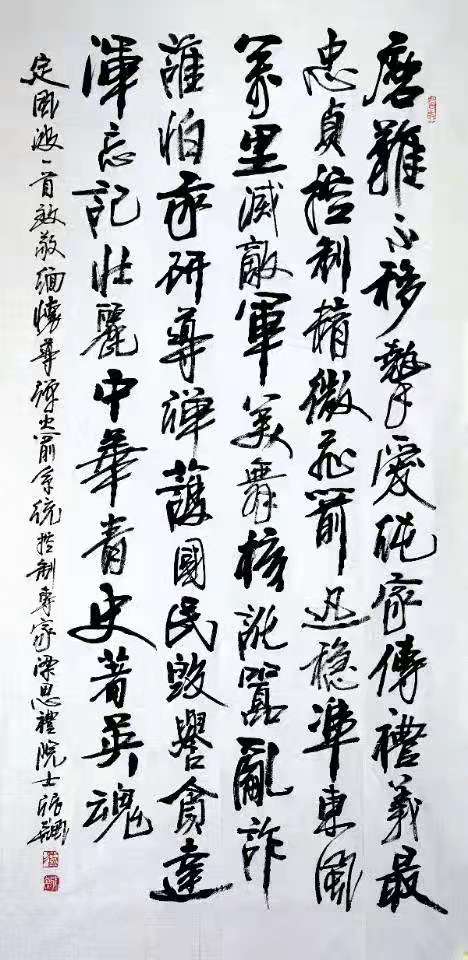 磨難不移摯愛純家傳禮義最
忠貞控制精微飛箭迅穩準東風
萬里滅敵軍美舞核訛囂亂詐
誰怕研導彈護國民毀譽貧達
渾忘記壯麗中華青史著英魂
定風波一首致敬緬懷導彈火箭系統控制專家梁思禮院士張飆